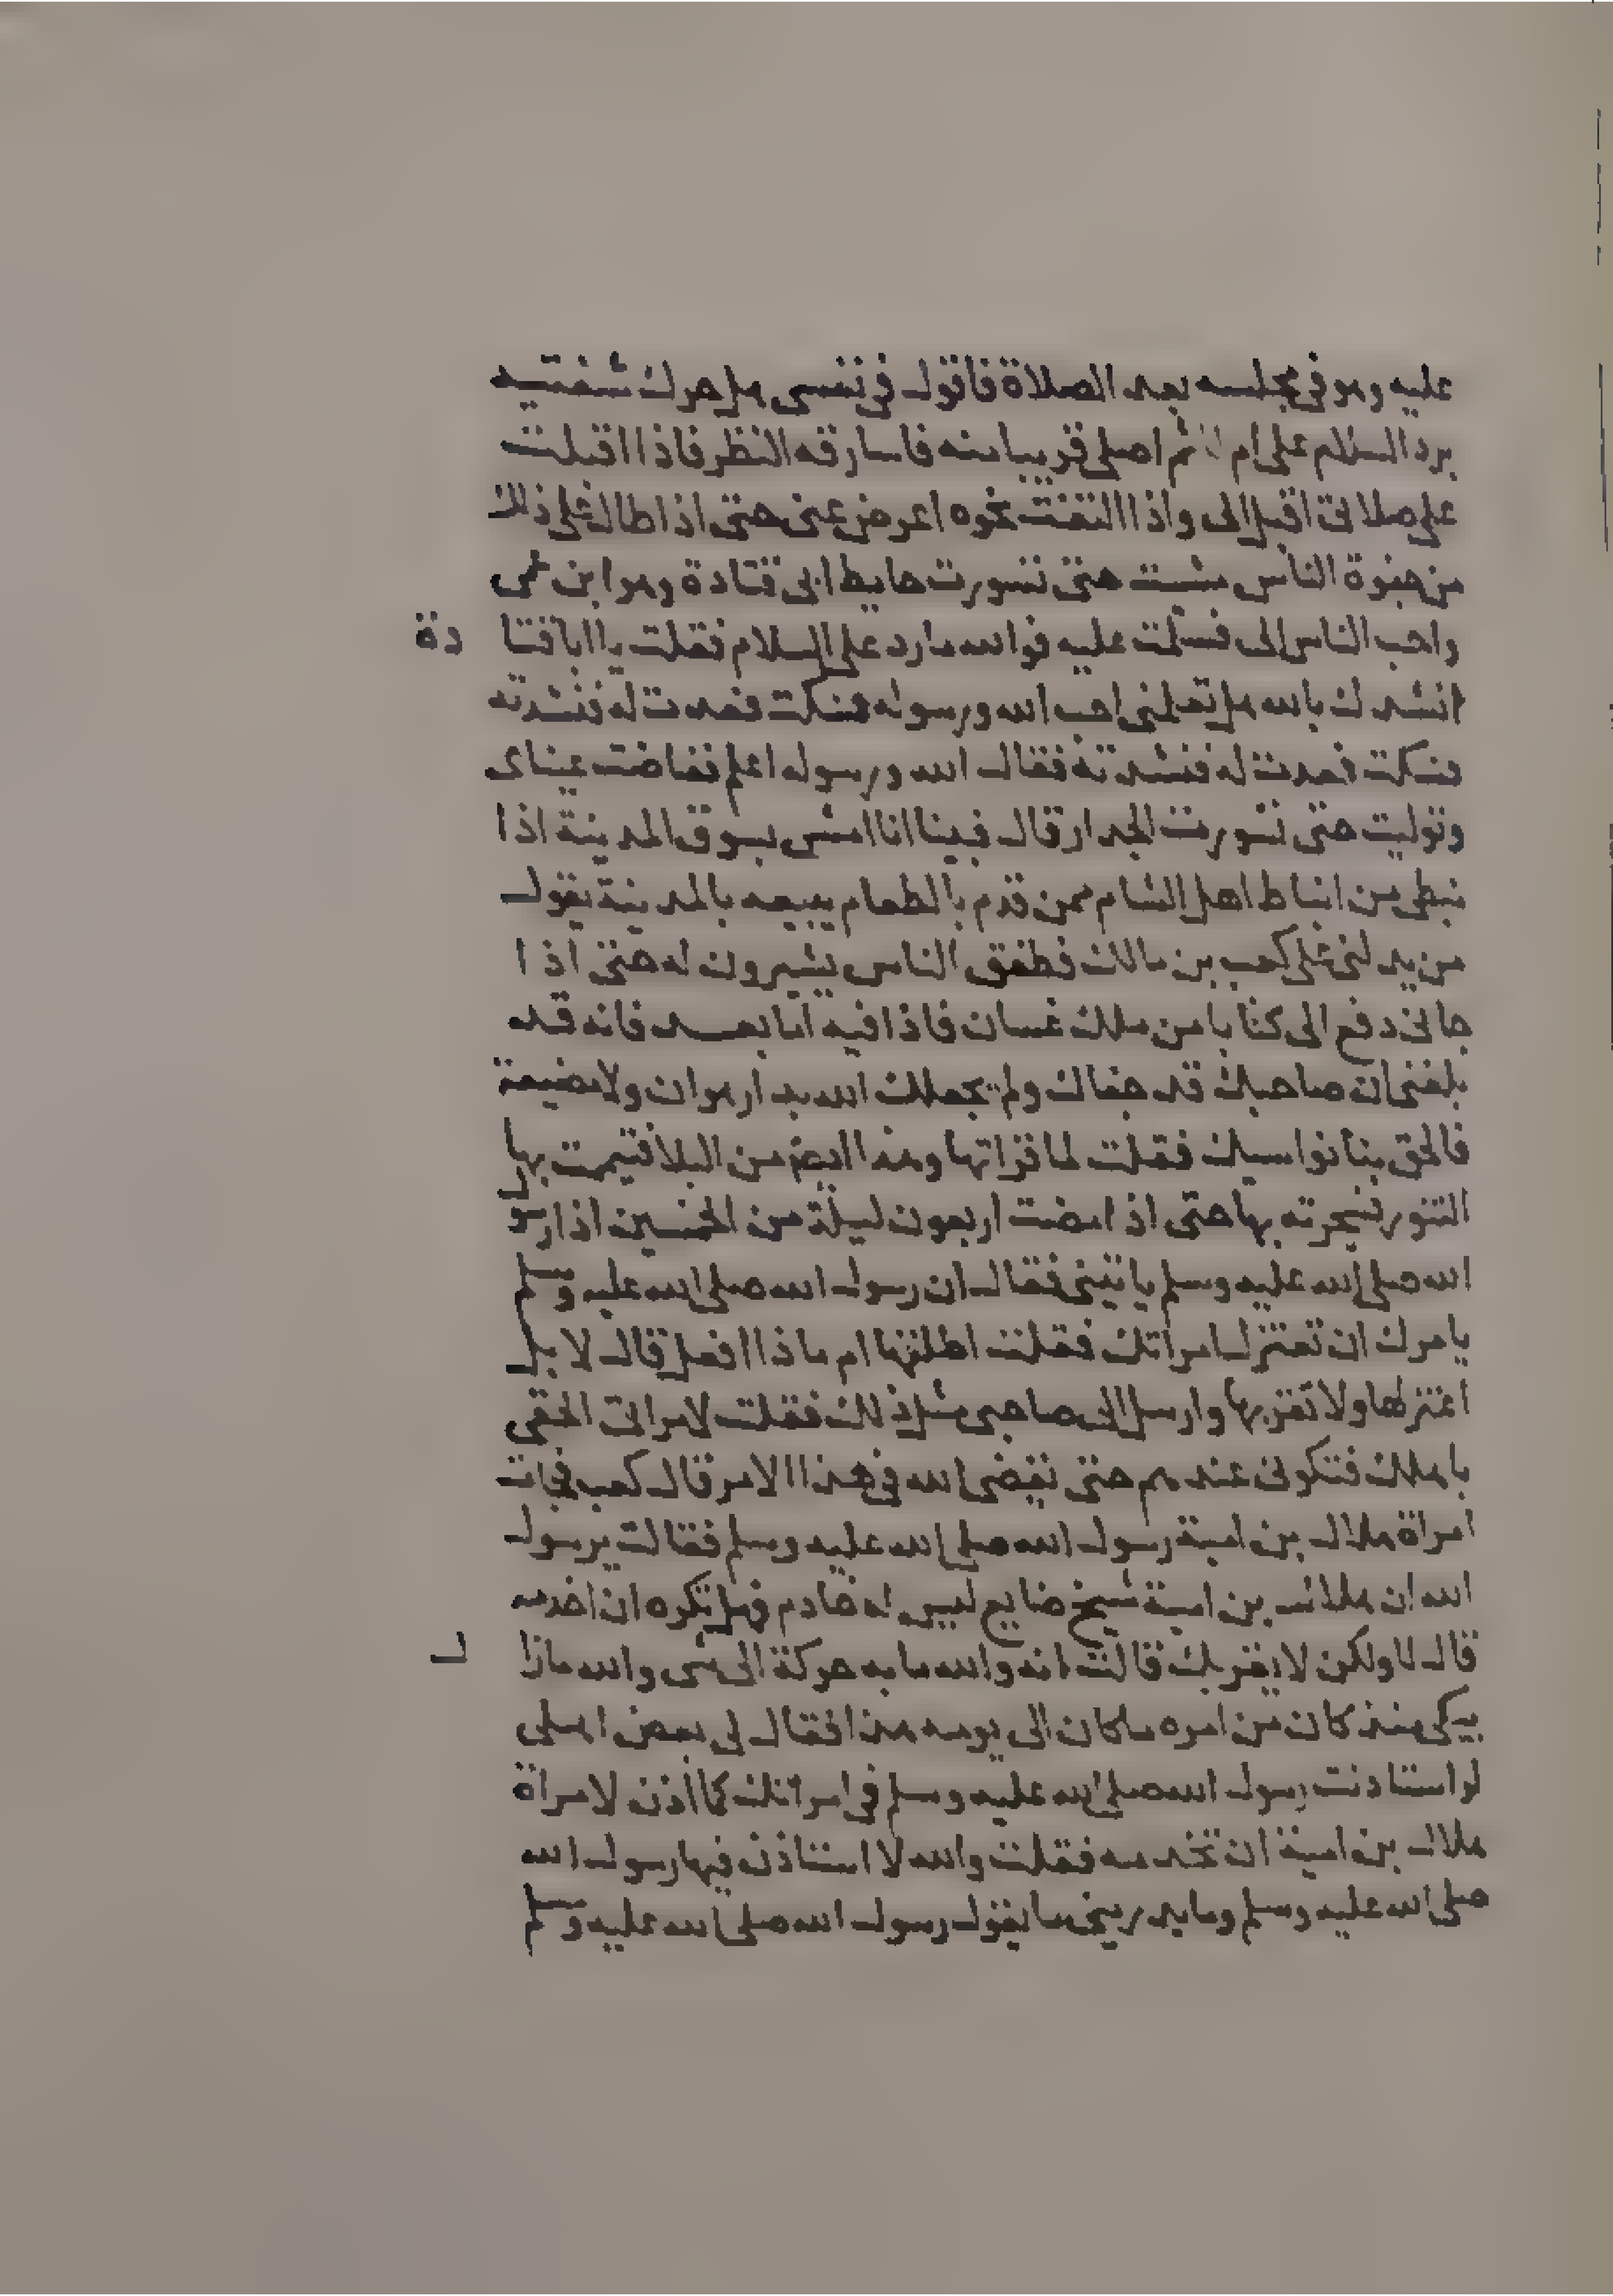 عليه وهو في مجلسه بعد الصلاة فاقول في نفسي هل حرك شفتيه
يرد السلام علي ام لا ثم اصلي قريبا منه فاسارقه النظر فاذا اقبلت
على صلاتي اقبل الي واذا التفت نحوه اعرض عني حتى اذا طال علي ذلك
من جفوة الناس مشيت حتى تسورت حايط ابي قتادة وهو ابن عمي
واحب الناس الي فسلمت عليه فوالله ما رد علي السلام فقلت يا ابا قتا دة
انشدك بالله هل تعلمني احب الله ورسوله فسكت فعدت له فنشدته
فسكت فعدت له فنشدته فقال الله ورسوله اعلم ففاضت عيناي
وتوليت حتى تسورت الجدار قال فبينا انا امشي بسوق المدينة اذا
نبطي من انباط اهل الشام ممن قدم بالطعام يبيعه بالمدينة يقول
من يدلني على كعب بن مالك فطفق الناس يشيرون له حتى اذا
جاني دفع الي كتابا من ملك غسان فاذا فيه اما بعد فانه قد
بلغني ان صاحبك قد جفاك ولم يجعلك الله بدار هوان ولا مضيعة
فالحق بنا نواسيك فقلت لما قراتها وهذا ايضا من البلا فتيممت بها
التنور فسجرته بها حتى اذا مضت اربعون ليلة من الخمسين اذا رسول
الله صلى الله عليه وسلم ياتيني فقال ان رسول الله صلى الله عليه وسلم
يامرك ان تعتزل امراتك فقلت اطلقها ام ماذا افعل قال لا بل
اعتزلها ولا تقربها وارسل الى صاحبي مثل ذلك فقلت لامراتي الحقي
باهلك فتكوني عندهم حتى يقضي الله في هذا الامر قال كعب فجات
امراة هلال بن امية رسول الله صلى الله عليه وسلم فقالت يرسول
الله ان هلال بن امية شيخ ضايع ليس له خادم فهل تكره ان اخدمه
قال لا ولكن لا يقربك قالت انه والله ما به حركة الى شي والله مازا ل
يبكي منذ كان من امره ما كان الى يومه هذا فقال لي بعض اهلي
لو استاذنت رسول الله صلى الله عليه وسلم في امراتك كما اذن لامراة
هلال بن امية ان تخدمه فقلت والله لا استاذن فيها رسول الله
صلى الله عليه وسلم وما يدريني ما يقول رسول الله صلى الله عليه وسلم